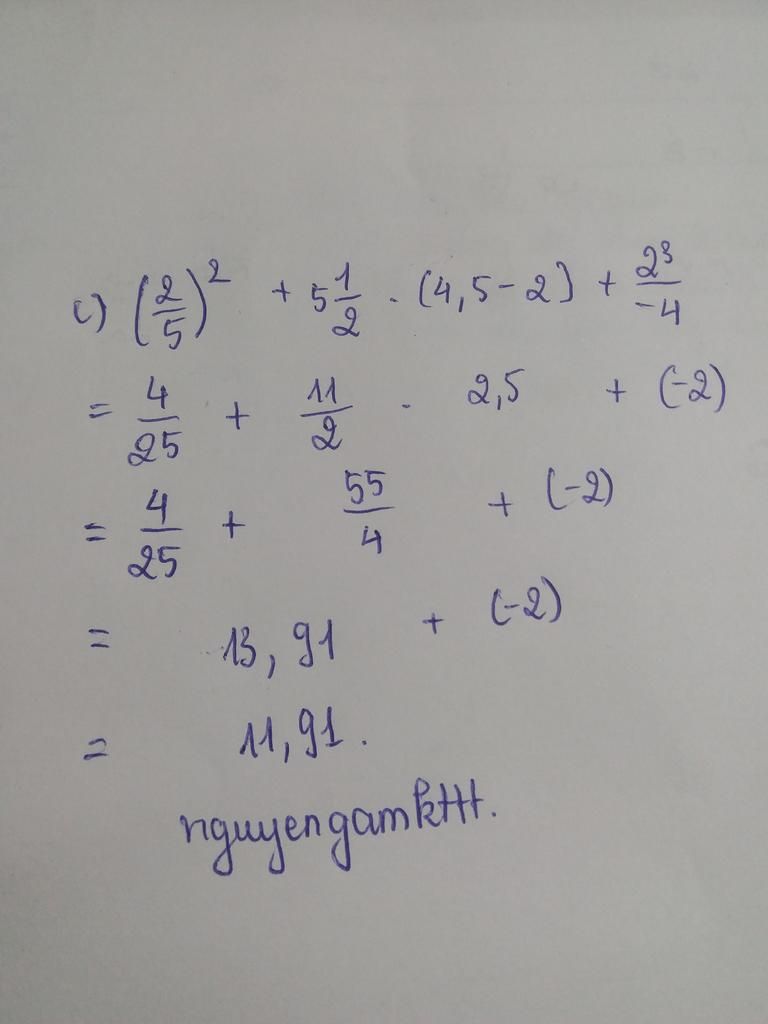 c) (2/5)² + 5 1/2 . (4,5 - 2) + 2³/-4
= 4/25 + 11/2 . 2,5 + (-2)
= 4/25 + 55/4 + (-2)
= 13,91 + (-2)
= 11,91.
nguyengamkttt.